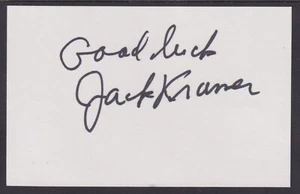 Good luck
Jack Kramer